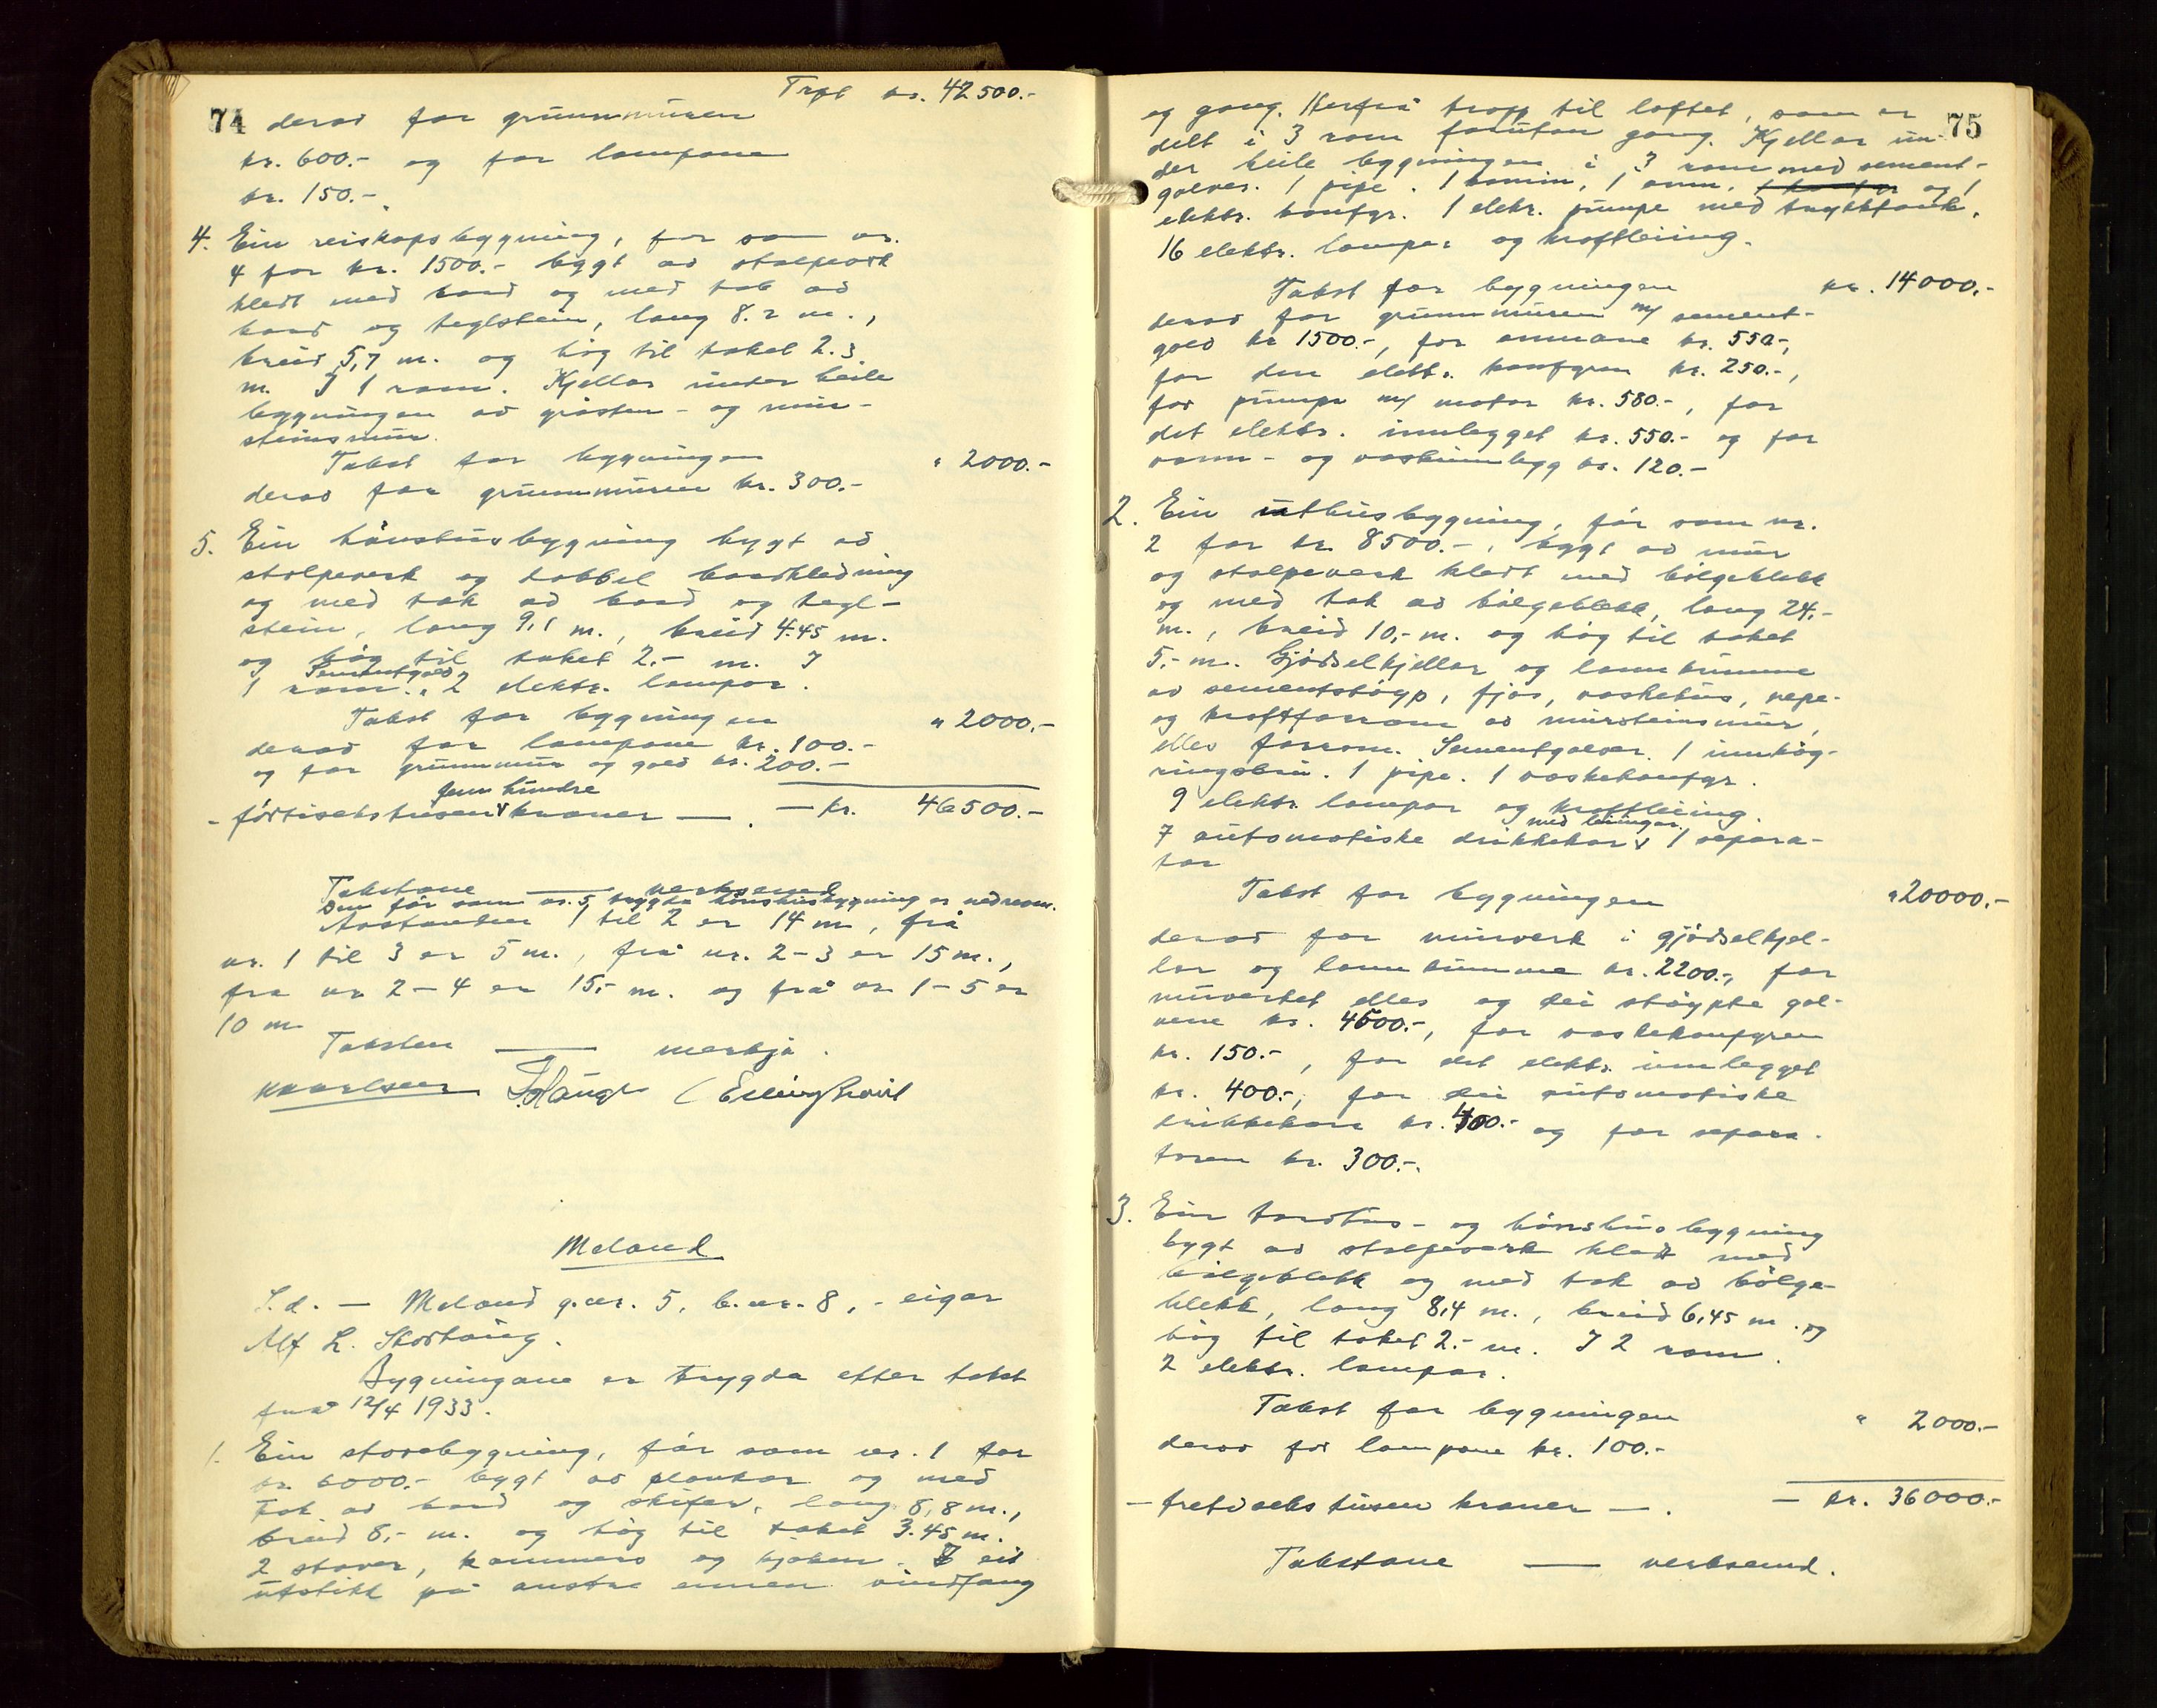 74
Trpt kr. 42500.-
derav for grunnmuren
kr. 600.- og for lampane
kr. 150.-
4. Ein reiskapsbygning, før som nr.
4 for kr. 1500.- bygt av stolpeverk
kledt med bord og med tak av
bord og teglstein, lang 8.2 m.,
breid 5,7 m. og høg til taket 2.3
m. I 1 rom. Kjellar under heile
bygningen av gråstein- og mur-
steinsmur.
Takst for bygningen " 2000.-
derav for grunnmuren kr. 300.-
5. Ein hønsehusbygning bygt av
stolpeverk og dobbel bordkledning
og med tak av bord og tegl-
stein, lang 9,1 m., breid 4.45 m.
og høg til taket 2.- m. I
1 rom. Sementgolv. 2 elektr. lampor.
Takst for bygningen " 2000.-
derav for lampane kr. 100.-
og for grunnmur og golv kr. 200.-
- førtiseks tusen fem hundre kroner — . — kr. 46500.-
Takstane — verksemd
Den før som nr. 5 trygda hønsehusbygning er nedreven.
Avstanden 1 til 2 er 14 m, frå
nr. 1 til 3 er 5 m., frå nr. 2-3 er 15 m.,
fra nr 2-4 er 15,- m. og frå nr 1-5 er
10 m
Taksten — merkja.
Elling
Meland
S.d. — Meland g.nr. 5, b.nr. 8, - eigar
Alf L. Skortaug.
Bygningane er trygda etter takst
frå 12/4 1933.
1. Ein stovebygning, før som nr. 1 for
kr. 6000.- bygt av plankar og med
tak av bord og skifer, lang 8,8 m.,
breid 8,- m. og høg til taket 3.45 m.
2 stover, kammers og kjøken. I eit
utstikk på austre enden vindfang
75
og gang. Herfrå tropp til loftet, som er
delt i 3 rom foruten gang. Kjellar un-
der heile bygningen i 3 rom med sement-
golver. 1 pipe. 1 kamin, 1 omn, og 1
elektr. komfyr. 1 elektr. pumpe med trykktank.
16 elektr. lamper og kraftleiing.
Takst for bygningen kr. 14000.-
derav for grunnmuren m/ sement-
golv kr 1500.-, for omnane kr. 550.-,
for den elektr. komfyren kr. 250.-,
for pumpe m/ motor kr. 580.-, for
det elektr. innlegget kr. 550.- og for
vann- og vaskinnlegg kr. 120.-
2. Ein uthusbygning, før som nr.
2 for kr 8500.-, bygt av mur
og stolpeverk kledt med bølgeblekk
og med tak av bølgeblekk, lang 24,-
m., breid 10,- m. og høg til taket
5,- m. Gjødselkjellar og landkumme
av sementstøyp, fjøs, vaskehus, nepe-
og kraftforrom av mursteinsmur,
elles forrom. Sementgolver. 1 innkøy-
ringsbru. 1 pipe. 1 vaskekomfyr.
9 elektr. lampor og kraftleiing.
7 automatiske drikkekar med leiingar. 1 separa-
tor
Takst for bygningen " 20000.-
derav for murverk i gjødselkjel-
lar og landkumme kr. 2200.-, for
murverket elles og dei støypte gol-
vene kr. 4500.-, for vaskekomfyren
kr. 150.-, for det elektr. innlegget
kr. 400.-, for dei automatiske
drikkekara kr. 400.- og for separa-
toren kr. 300.-.
3. Ein torvhus- og hønsehusbygning
bygt av stolpeverk kledt med
bølgeblekk og med tak av bølge-
blekk, lang 8,4 m., breid 6,45 m. og
høg til taket 2.- m. I 2 rom.
2 elektr. lampor.
Takst for bygningen " 2000.-
derav for lampane kr. 100.-
- trettiseks tusen kroner — . — kr. 36000.-
Takstane — verksemd.